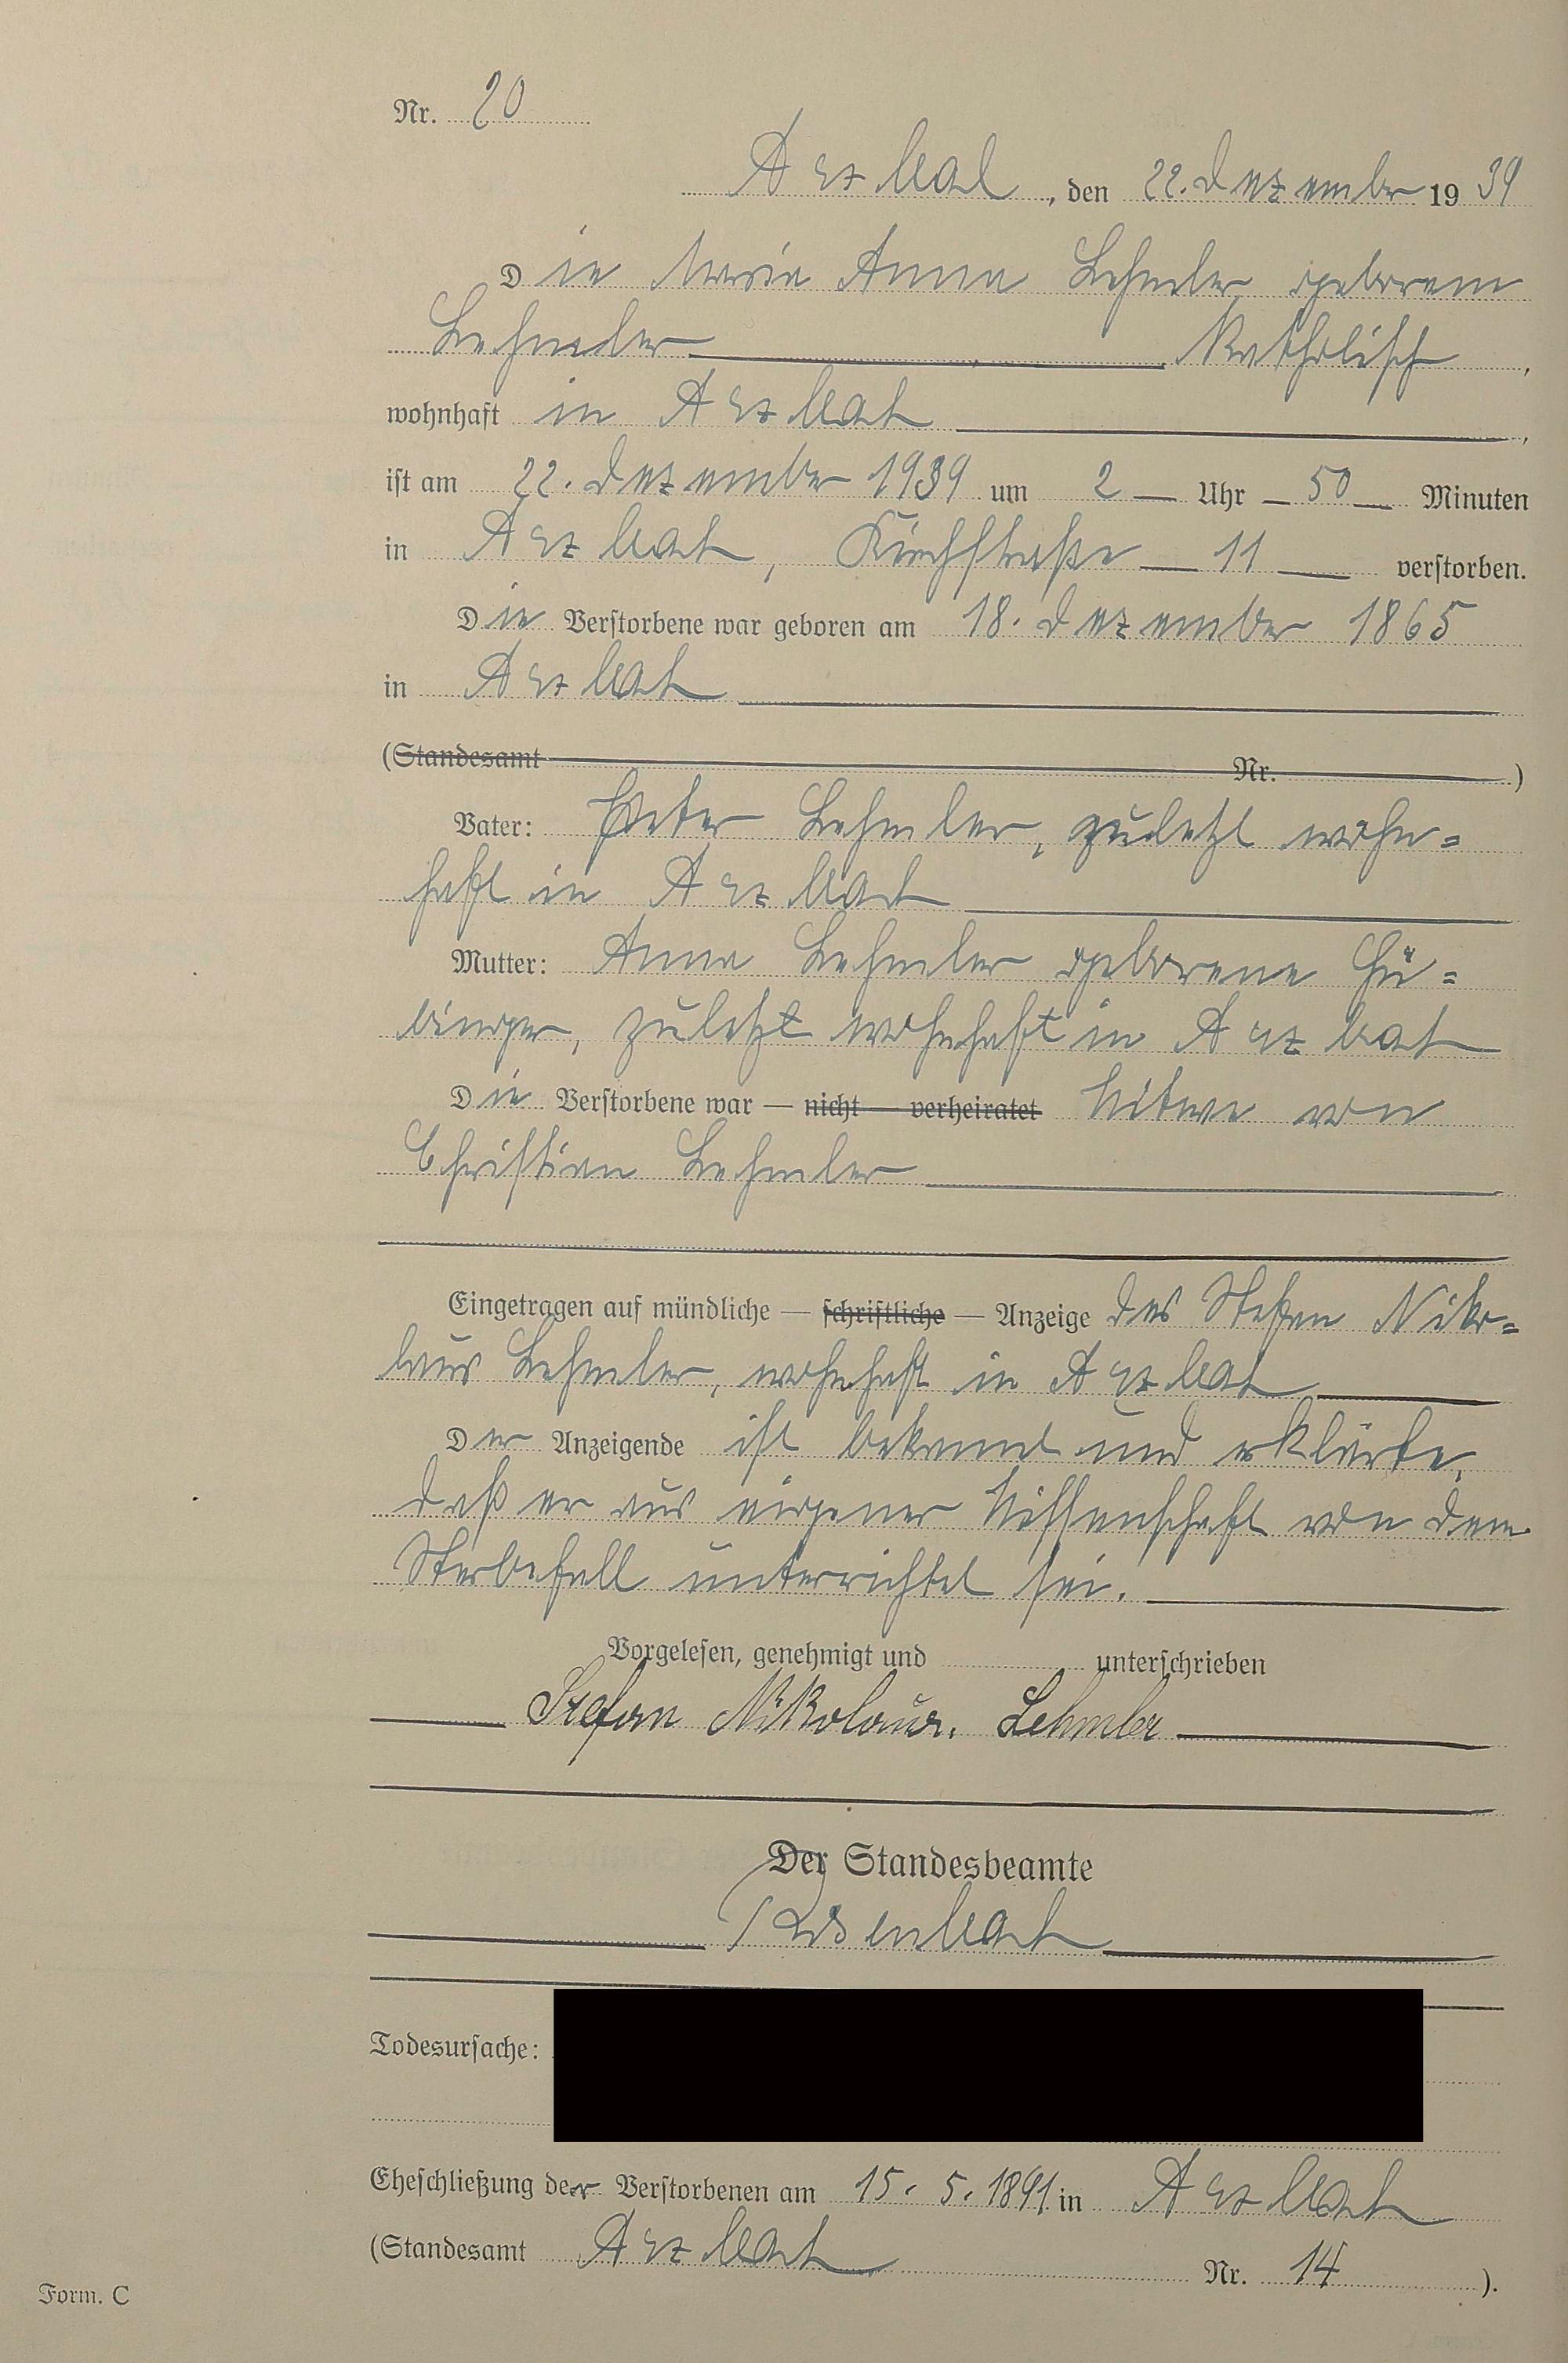 Nr. 20
Arzbach, den 22. Dezember 1939
Die Maria Anna Lehmler geborene
Lehmler katholisch,
wohnhaft in Arzbach,
ist am 22. Dezember 1939 um 2 Uhr 50 Minuten
in Arzbach, Kirchstraße 11 verstorben.
Die Verstorbene war geboren am 18. Dezember 1865
in Arzbach
(Standesamt Nr. )
Vater: Peter Lehmler, zuletzt wohn=
haft in Arzbach
Mutter: Anna Lehmler geborene Hü=
binger, zuletzt wohnhaft in Arzbach
Die Verstorbene war — nicht — verheiratet Witwe von
Christian Lehmler
Eingetragen auf mündliche — schriftliche — Anzeige des Stefan Niko=
laus Lehmler, wohnhaft in Arzbach
Der Anzeigende ist bekannt und erklärte,
daß er aus eigener Wissenschaft von dem
Sterbefall unterrichtet sei.
Vorgelesen, genehmigt und unterschrieben
Stefan Nikolaus. Lehmler
Der Standesbeamte
Todesursache:
Eheschließung der Verstorbenen am 15. 5. 1891 in Arzbach
(Standesamt Arzbach Nr. 14 ).
Form. C